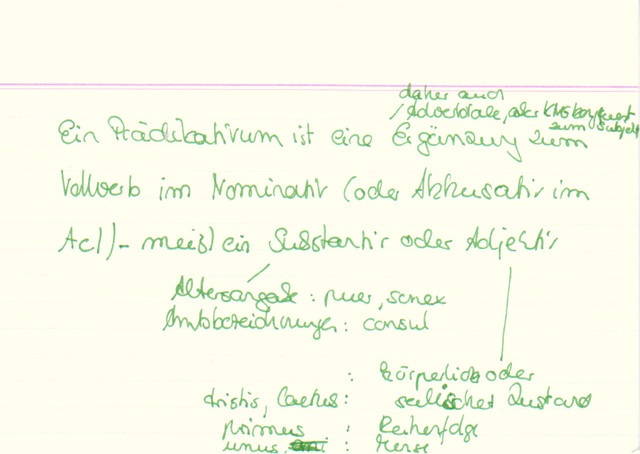 daher auch
/ Adverbiale, aber KNG kongruent
zum Subjekt
Ein Prädikativum ist eine Ergänzung zum
Vollverb im Nominativ (oder Akkusativ im
AcI) - meist ein Substantiv oder Adjektiv
Altersangabe : puer, senex
Amtsbezeichnungen : consul
: körperlich oder
tristis, laetus : seelischer Zustand
primus : Reihenfolge
unus, : Menge